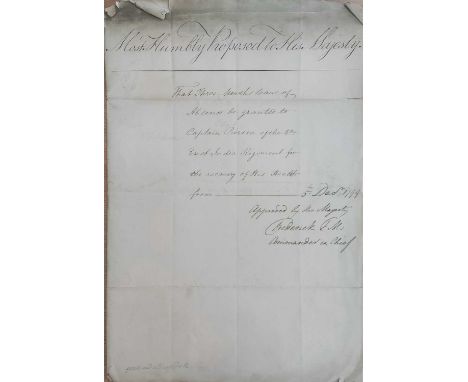 Most Humbly Proposed to His Majesty.
That Three Months leave of
Absence be granted to
Captain Pierson of the
East India Regiment for
the recovery of His Health
from 5th Decr. 1799
Approved by His Majesty
Frederick F.M.
Commander in Chief